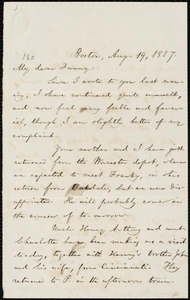 Boston, Aug. 19, 1857.
My dear Fanny:
Since I wrote to you last eve-
ning, I have continued quite unwell,
and now feel very feeble and fever-
ish, though I am slightly better of my
complaint.
Your mother and I have just
returned from the Worcester depot, where
we expected to meet Franky, on his
return from Oakdale, but we are disap-
pointed. He will probably come in
the course of to-morrow.
Uncle Henry Anthony and aunt
Charlotte have been making us a visit
to-day, together with Henry's brother John
and his wife, from Cincinnati. They
returned to P. in the afternoon train.